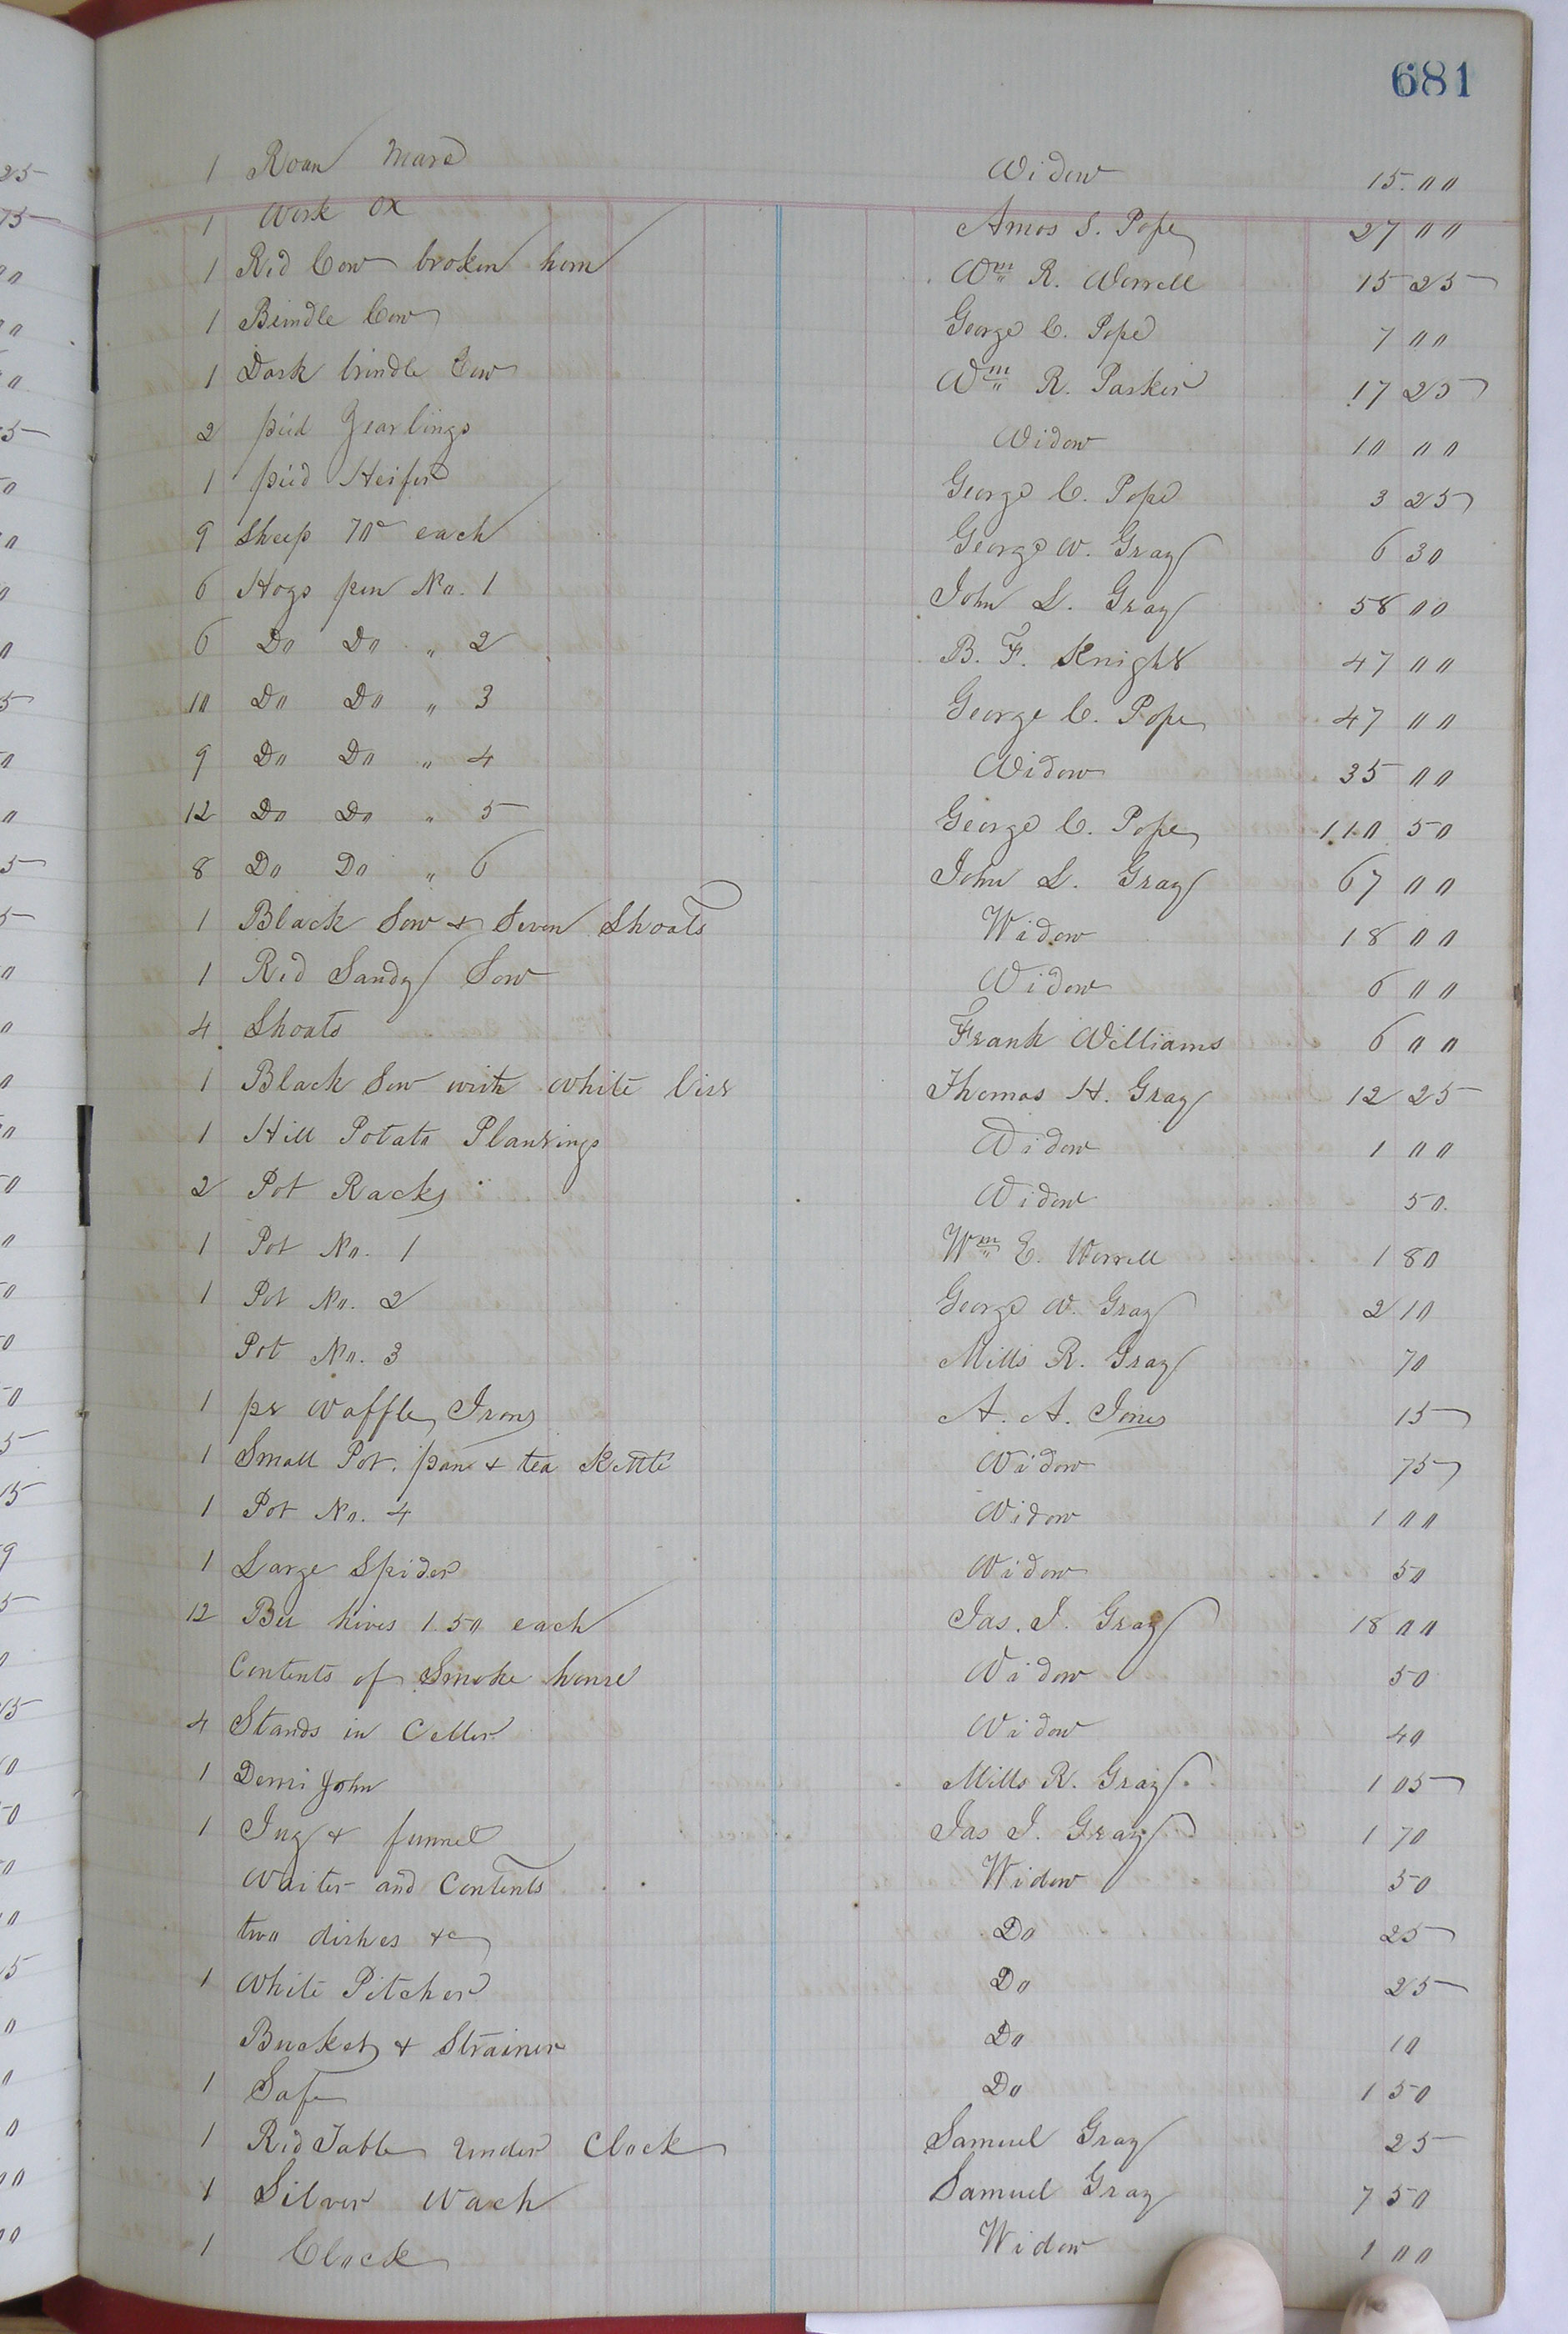 681
1 Roan Mare Widow 15.00
1 Work Ox Amos S. Pope 27 00
1 Red Cow broken horn Wm R. Worrell 15 25
1 Brindle Cow George C. Pope 7 00
1 Dark brindle Cow Wm R. Parker 17 25
2 pied Yearlings Widow 10 00
1 pied Heifer George C. Pope 3 25
9 Sheep 70c each George W. Gray 6 30
6 Hogs pen No. 1 John L. Gray 58 00
6 Do Do " 2 B. F. Knight 47 00
10 Do Do " 3 George C. Pope 47 00
9 Do Do " 4 Widow 35 00
12 Do Do " 5 George C. Pope 110 50
8 Do Do " 6 John L. Gray 67 00
1 Black Sow & Seven Shoats Widow 18 00
1 Red Sandy Sow Widow 6 00
4 Shoats Frank Williams 6 00
1 Black Sow with White Thomas H. Gray 12 25
1 Hill Potato Plantings Widow 1 00
2 Pot Racks Widow 50
1 Pot No. 1 Wm E. Worrell 1 80
1 Pot No. 2 George W. Gray 2 10
Pot No. 3 Mills R. Gray 70
1 pr Waffle Irons A. A. Jones 15
1 Small Pot. pan & tea Kettle Widow 75
1 Pot No. 4 Widow 1 00
1 Large Spider Widow 50
12 Bee hives 1.50 each Jas. J. Gray 18 00
Contents of Smoke house Widow 50
4 Stands in Celler Widow 40
1 Demi John Mills R. Gray 1 05
1 Jug & funnel Jas J. Gray 1 70
Waiter and Contents Widow 50
two dishes &c Do 25
1 White Pitcher Do 25
Bucket & Strainer Do 10
1 Safe Do 1 50
1 Red Table under Clock Samuel Gray 25
1 Silver Wach Samuel Gray 7 50
1 Clock Widow 1 00